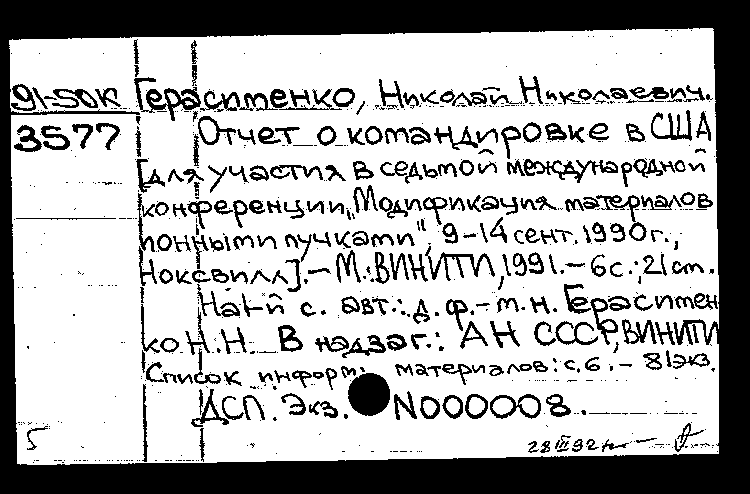 91-50К Герасименко, Николай Николаевич.
3577 Отчет о командировке в США
[для участия в седьмой международной
конференции „Модификация материалов
ионными пучками", 9-14 сент. 1990г.,
Ноксвилл]. – М.: ВИНИТИ, 1991. – 6с.; 21 см.
На 1-й с. авт.: д. ф.-м. н. Герасимен
ко Н.Н. В надзаг.: АН СССР, ВИНИТИ
Список информ. материалов: с. 6. – 81экз.
ДСП. Экз. N000008.
5 28 III 92